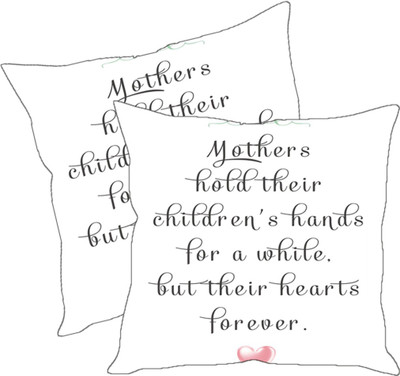 Mothers
hold their
child
fo
but
Mothers
hold their
children's hands
for a while.
but their hearts
forever.